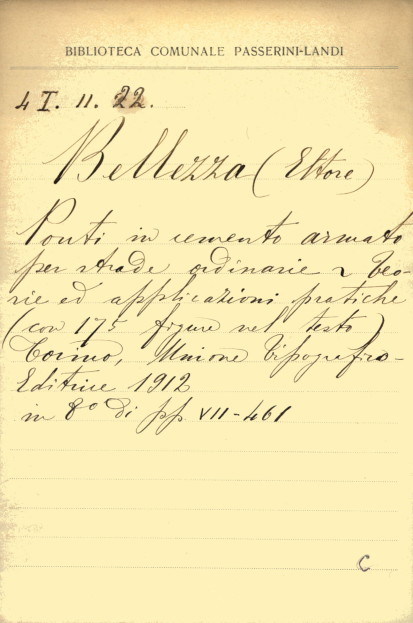 BIBLIOTECA COMUNALE PASSERINI-LANDI
4 I. 11. 22.
Bellezza (Ettore)
Ponti in cemento armato
per strade ordinarie ~ Teo-
rie ed applicazioni pratiche
(con 175 figure nel testo)
Torino, Unione Tipografico-
Editrice 1912
in 8° di pp VII-461
C